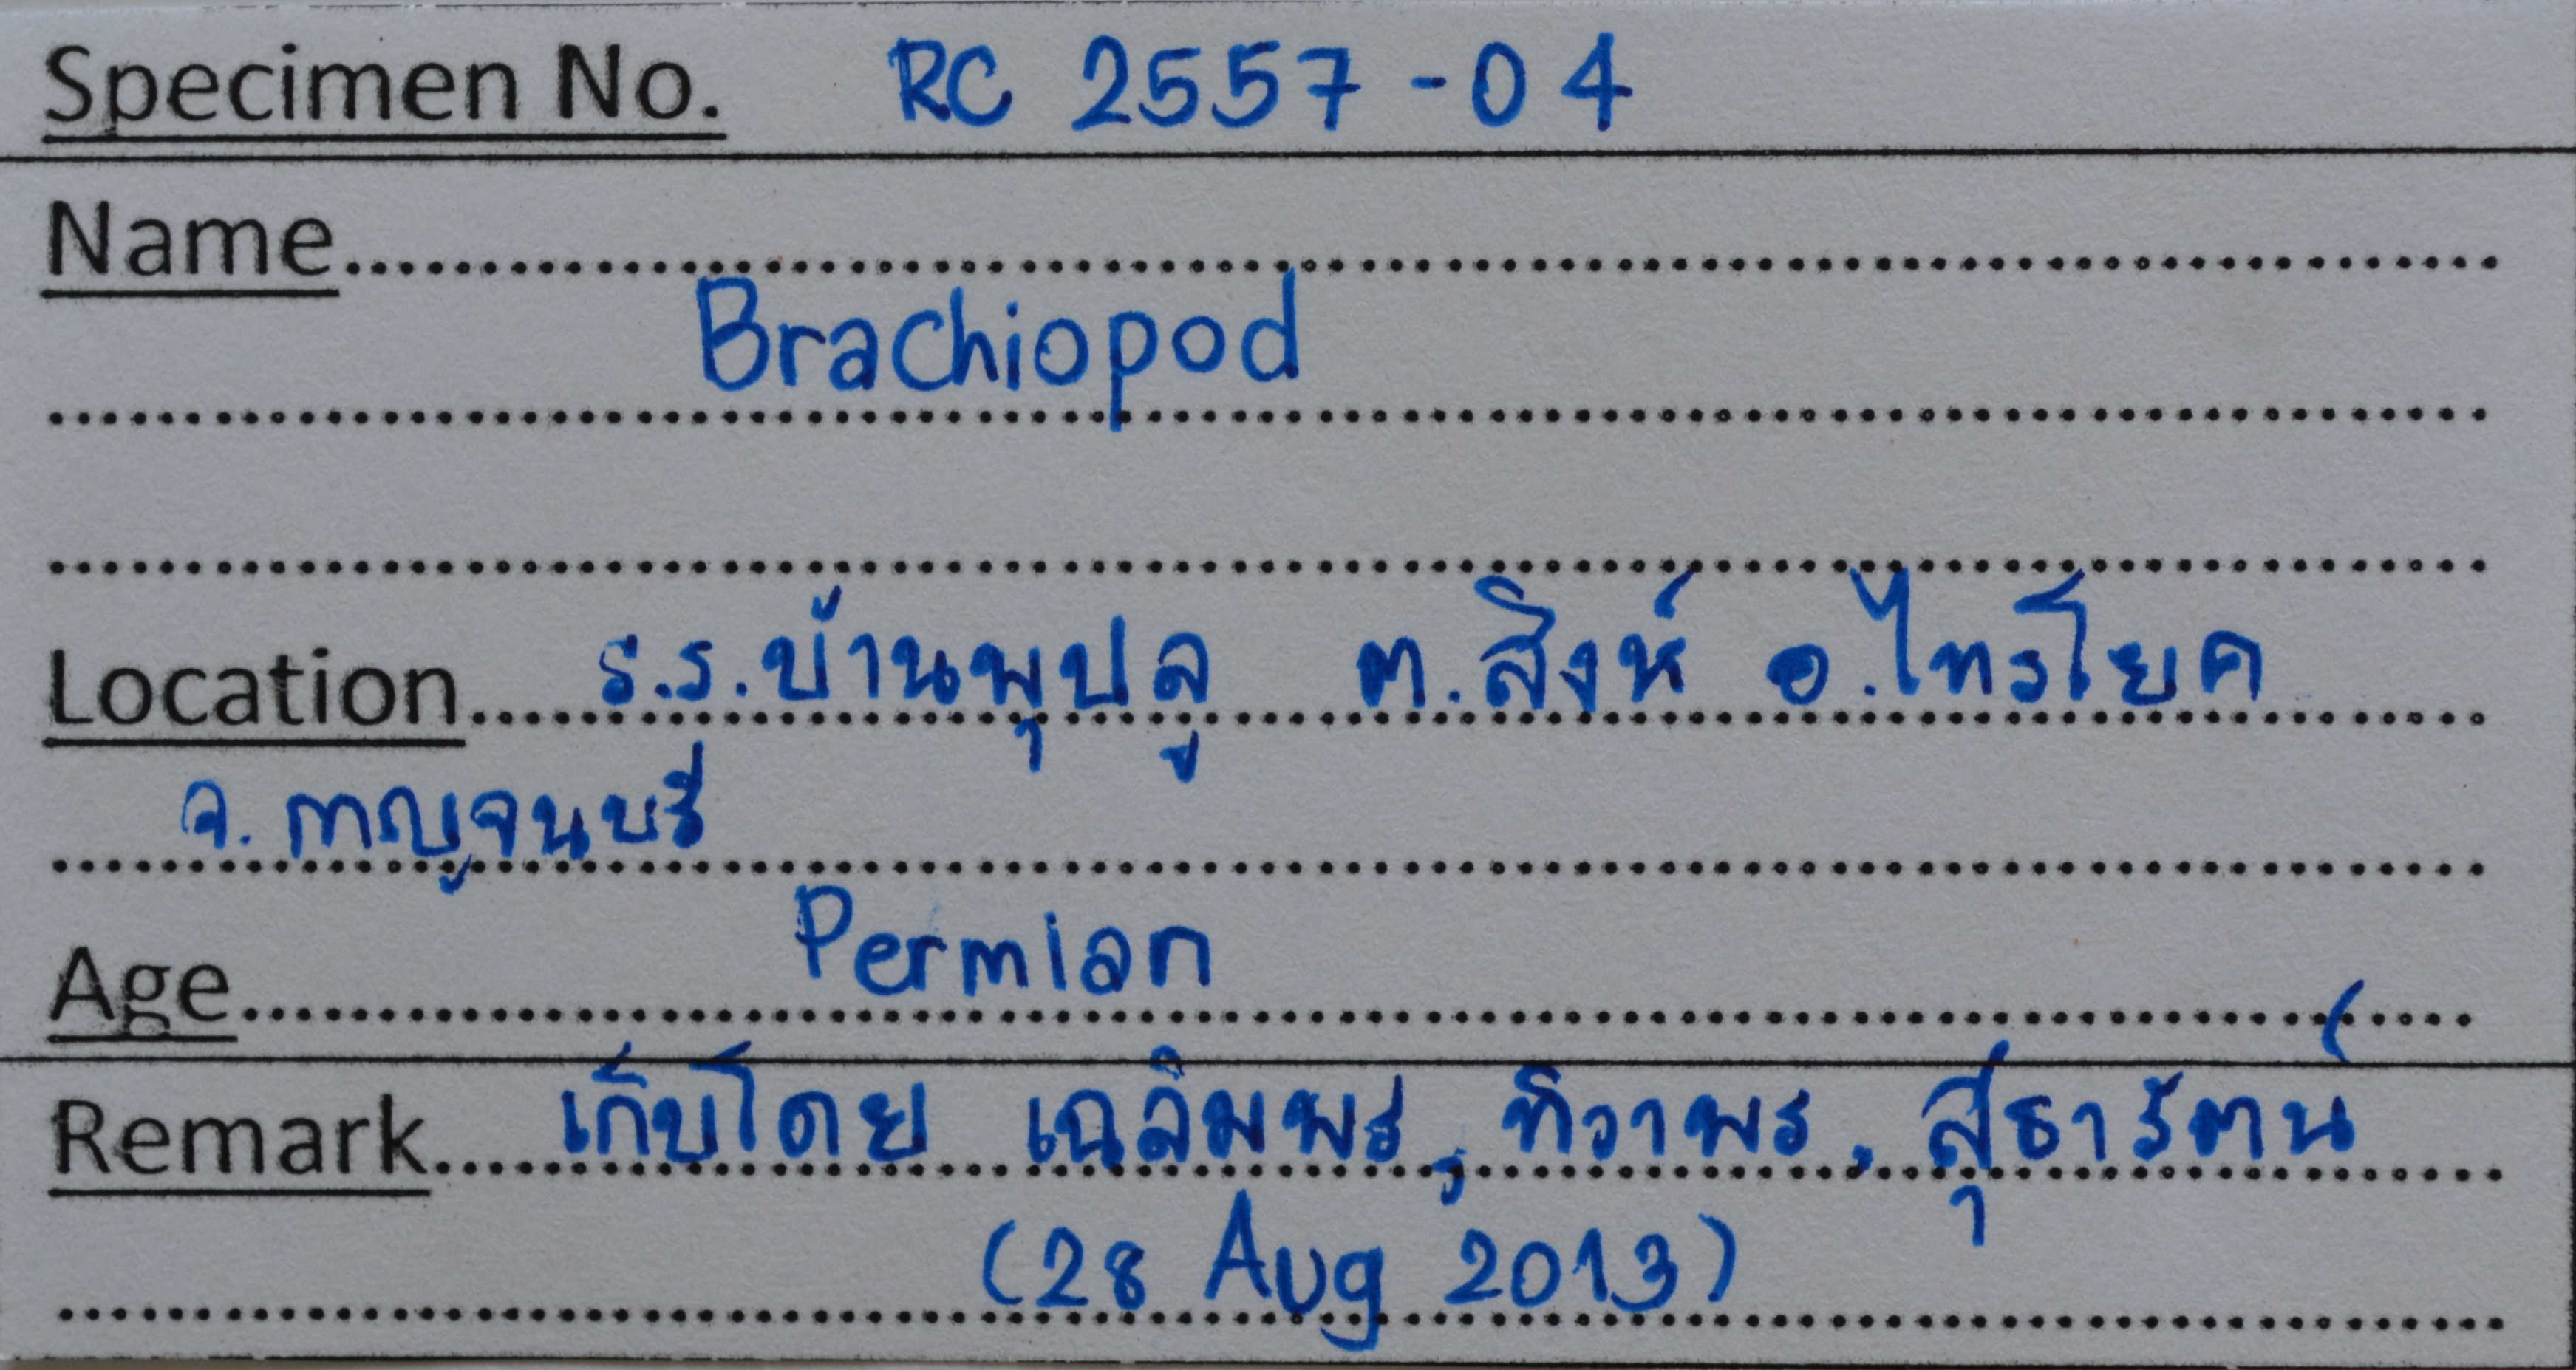 Specimen No. RC 2557-04
Name
Brachiopod
Location ร.ร.บ้านพุปลู ต.สิงห์ อ.ไทรโยค
จ.กาญจนบรี
Age Permian
Remark เก็บโดย เฉลิมพร, ทิวาพร, สุธารัตน์
(28 Aug 2013)